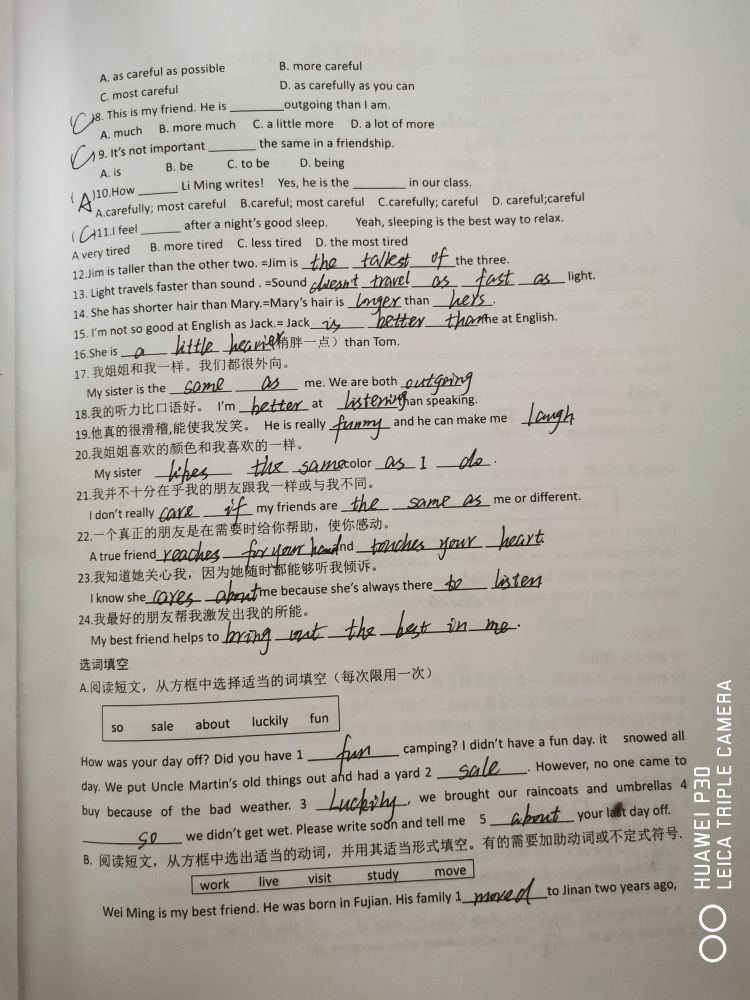 A. as careful as possible B. more careful
C. most careful D. as carefully as you can
(C)8. This is my friend. He is ________outgoing than I am.
A. much B. more much C. a little more D. a lot of more
(C)9. It's not important _______ the same in a friendship.
A. is B. be C. to be D. being
(A)10.How ______ Li Ming writes! Yes, he is the ________ in our class.
A.carefully; most careful B.careful; most careful C.carefully; careful D. careful;careful
(C)11.I feel ______ after a night's good sleep. Yeah, sleeping is the best way to relax.
A very tired B. more tired C. less tired D. the most tired
12.Jim is taller than the other two. =Jim is the tallest of the three.
13. Light travels faster than sound . =Sound doesn't travel as fast as light.
14. She has shorter hair than Mary.=Mary's hair is longer than hers.
15. I'm not so good at English as Jack.= Jack is better than me at English.
16.She is a little heavier (稍胖一点）than Tom.
17. 我姐姐和我一样。我们都很外向。
My sister is the same as me. We are both outgoing
18.我的听力比口语好。 I'm better at listening than speaking.
19.他真的很滑稽,能使我发笑。 He is really funny and he can make me laugh
20.我姐姐喜欢的颜色和我喜欢的一样。
My sister likes the same color as I do .
21.我并不十分在乎我的朋友跟我一样或与我不同。
I don't really care if my friends are the same as me or different.
22.一个真正的朋友是在需要时给你帮助，使你感动。
A true friend reaches for your hand and touches your heart.
23.我知道她关心我，因为她随时都能够听我倾诉。
I know she cares about me because she's always there to listen
24.我最好的朋友帮我激发出我的所能。
My best friend helps to bring out the best in me.
选词填空
A.阅读短文，从方框中选择适当的词填空（每次限用一次）
so sale about luckily fun
How was your day off? Did you have 1 fun camping? I didn't have a fun day. it snowed all
day. We put Uncle Martin's old things out and had a yard 2 sale. However, no one came to
buy because of the bad weather. 3 Luckily, we brought our raincoats and umbrellas 4
so we didn't get wet. Please write soon and tell me 5 about your last day off.
B. 阅读短文，从方框中选出适当的动词，并用其适当形式填空。有的需要加助动词或不定式符号.
work live visit study move
Wei Ming is my best friend. He was born in Fujian. His family 1 moved to Jinan two years ago,
HUAWEI P30
LEICA TRIPLE CAMERA